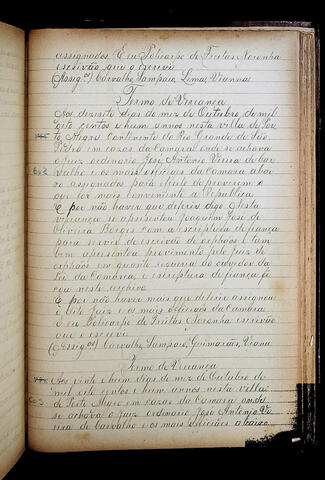 assignados. E eu Policarpo de Freitas Noronha
escrivão que o escrevi
(Assigos) Carvalho, Sampaio, Lima, Vianna
Termo de Vereança
Aos dezoito dias do mez de Outubro de mil
oito centos e hum annos nesta villa de Por
to Alegre Continente do Rio Grande de São
Pedro em cazas da Camara onde se achava
o juiz ordinario José Antonio Vieira de Car
valho e os mais officiaes da Camara abai
xo assignados para effeito de proverem o
que for mais conveniente a Republica
E por não haver que deferir digo Nesta
vereança se apresentou Joaquim José de
Oliveira Borges com a escriptura de fiança
para servir de escrivão de orphãos e tam
bem apresentou provimento pelo juiz de
orphãos em quanto requeria ao ouvidor da
Lei da Comarca, e escriptura de fiança fi
cou neste archivo
E por não haver mais que deferir assignou
o dito juiz e os mais officiaes da Camara
E eu Policarpo de Freitas Noronha escrivão
que o escrevi
(Assigos) Carvalho, Sampaio, Guimarães, Viana
Termo de Vereança
Aos vinte e hum dias do mez de Outubro de
mil oito centos e hum annos nesta villa
de Porto Alegre em cazas da Camara onde
se achava o juiz ordinario José Antonio Vi
eira de Carvalho e os mais officiaes abaixo